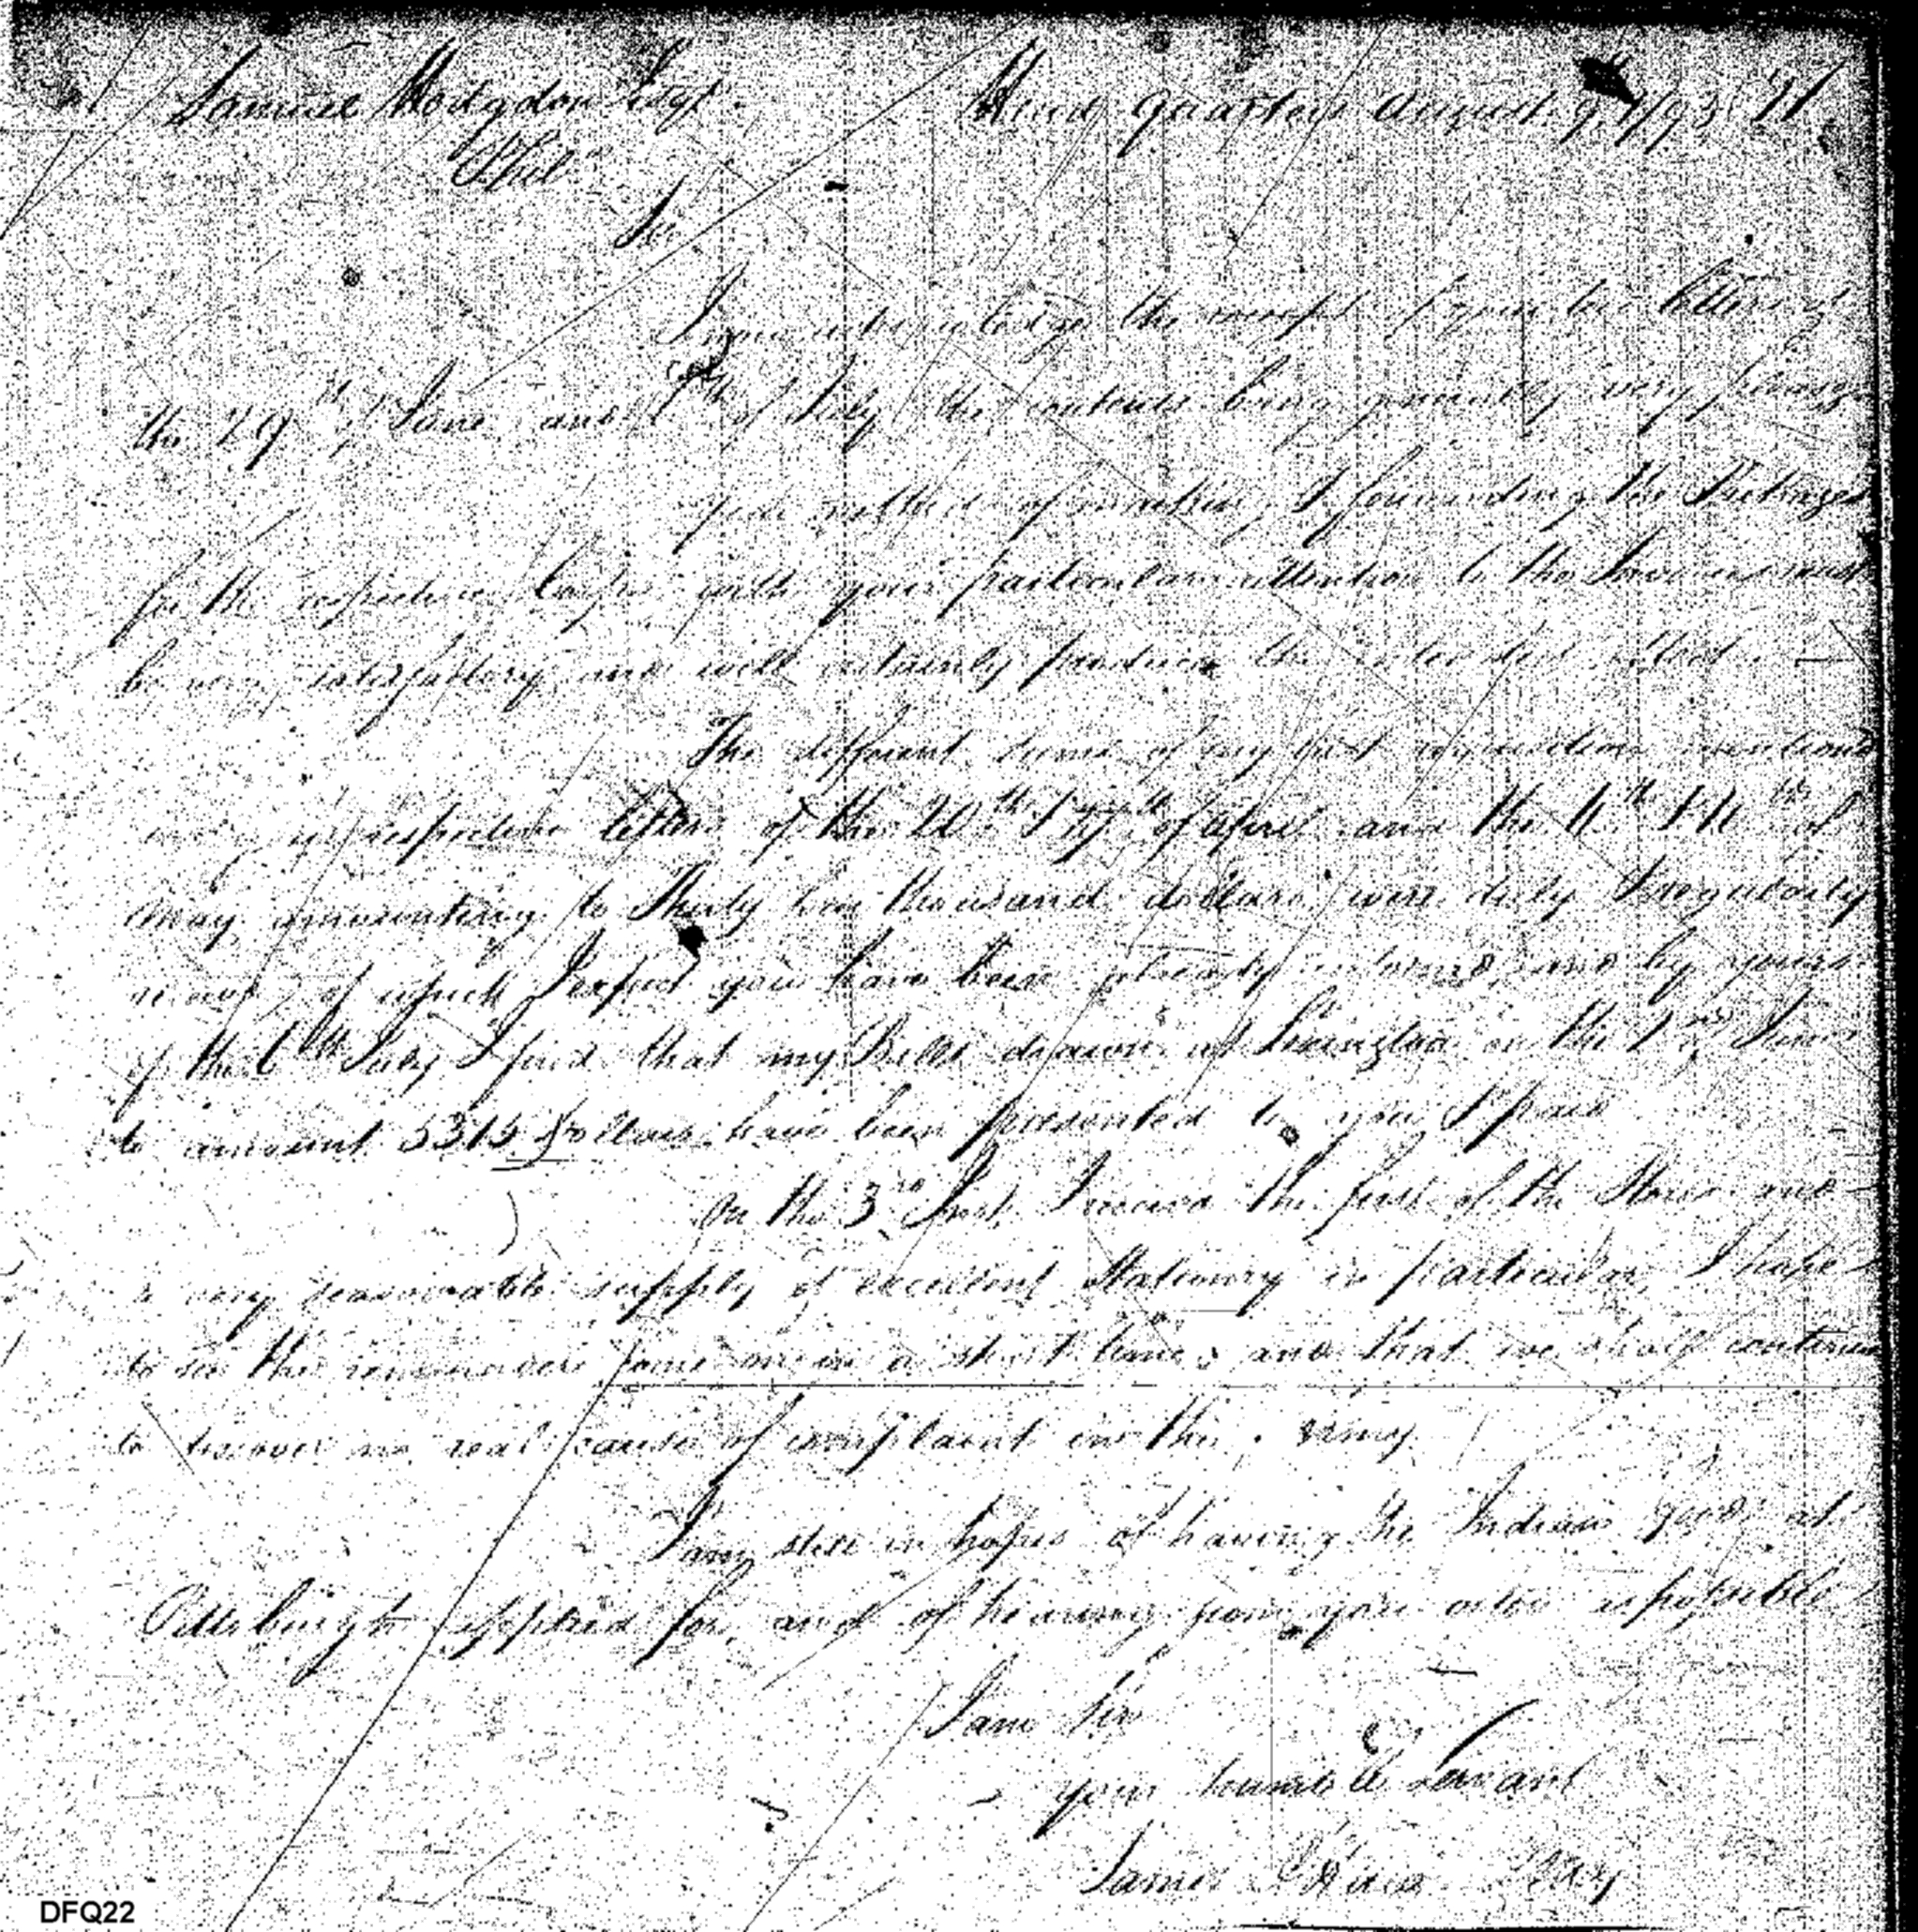 Samuel Hodgdon Esqr. Head Quarters August 9. 1793
Phila
Sir
I now acknowledge the receipt of your two letters of
the 29th of June and 6th of July the contents being generally very pleasing
your method of marking & forwarding the Packages
for the respective Corps with your particular attention to the Invoices must
be very satisfactory and will certainly produce the intended effect
The different sums of my last requisition mentiond
in respective letters of the 20th & 27th of April and the 4th & 11th of
May amounting to Thirty two thousand dollars were duly & regularly
receivd of which I expect you have been already informd, and by yours
of the 6th July I find that my Bills drawn at Lexington on the 2nd June
to amount 5315 Dollars have been presented to you & paid
On the 3rd Inst. I receivd the first of the Stores and
a very seasonable supply of excellent Stationery in particular, I hope
to see the remainder come on in a short time, and that we shall continue
to discover no real cause of complaint in the army
I am still in hopes of having the Indian goods at
Pittsburgh applied for, and of hearing from you often as possible
I am Sir
your humble Servant
James O'Hara
DFQ22